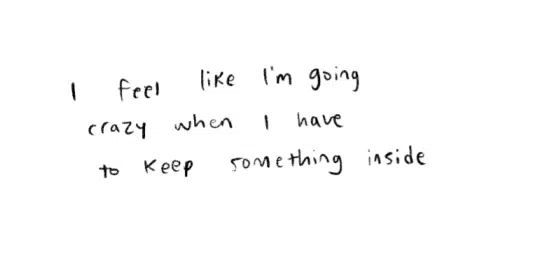 I feel like I'm going
crazy when I have
to keep something inside